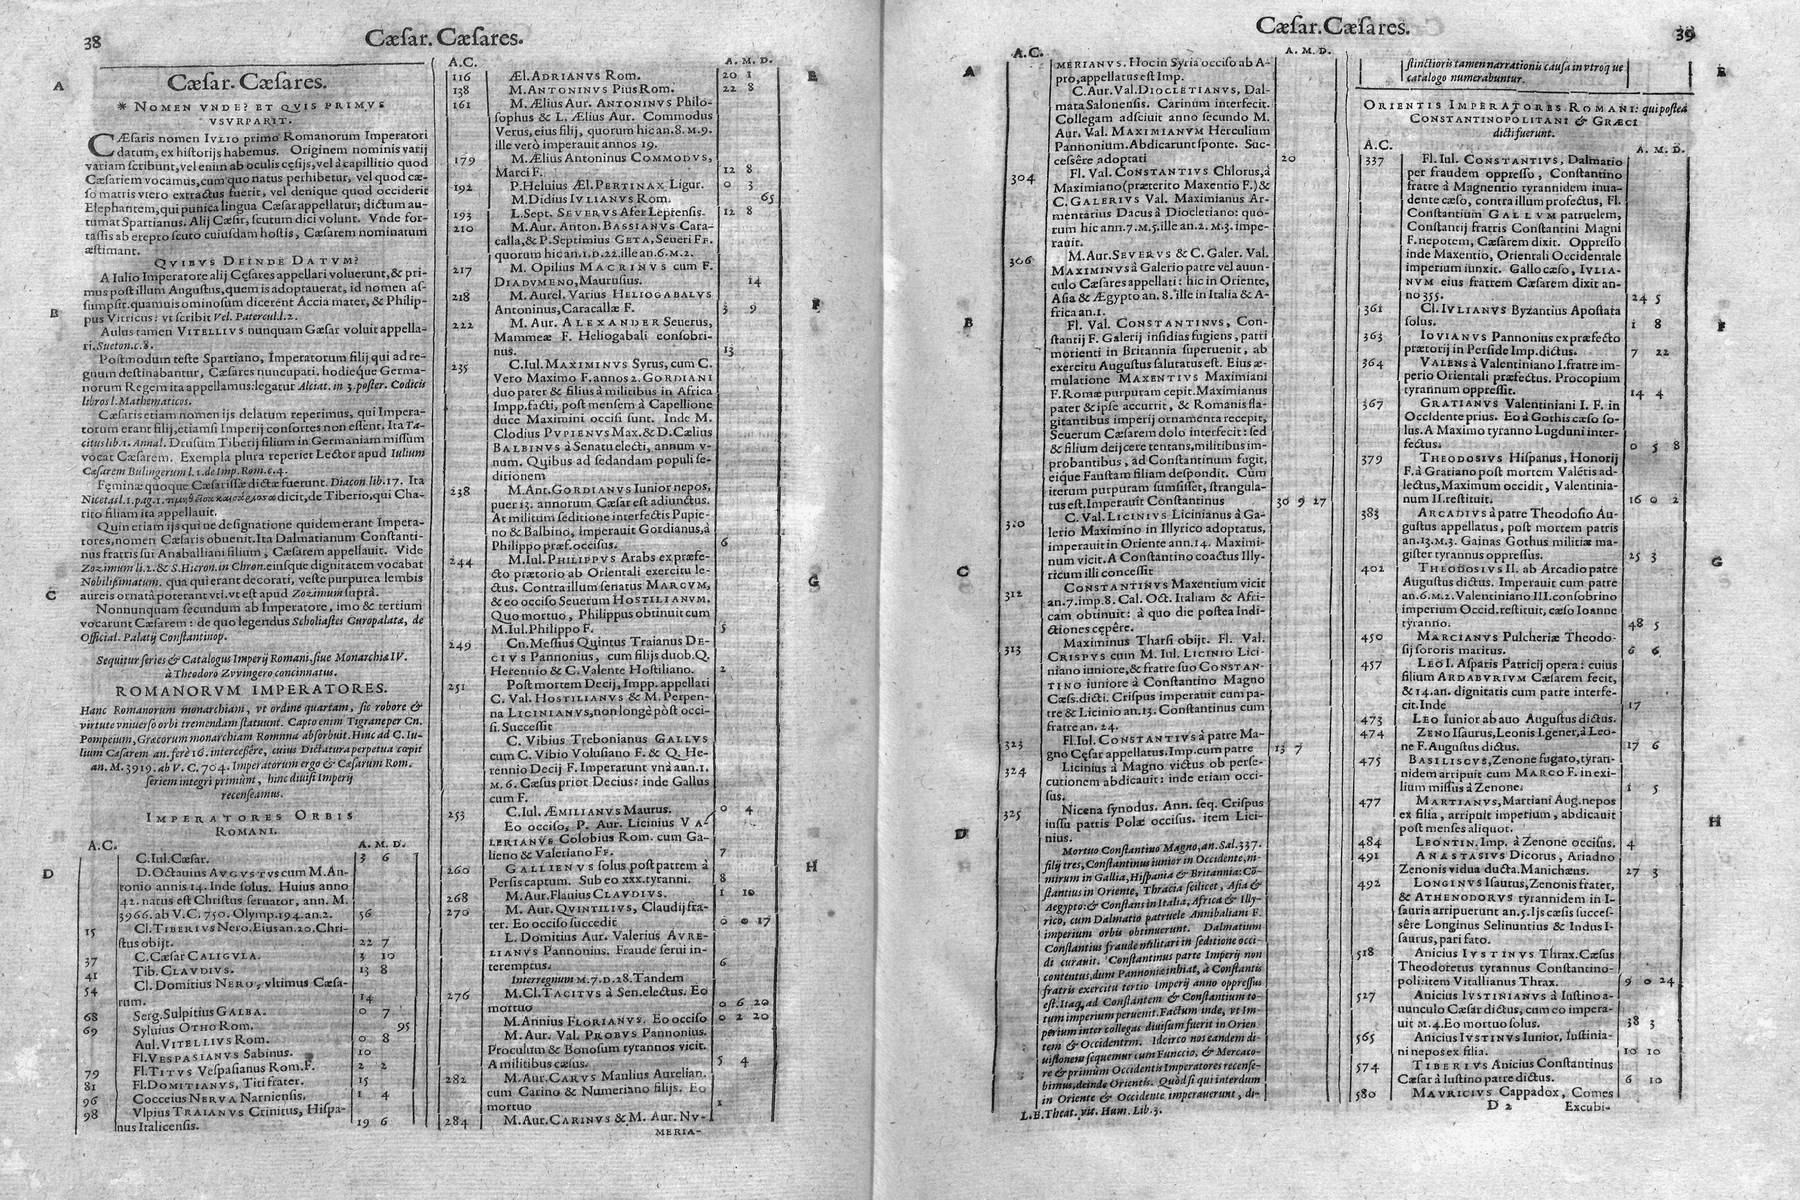 38
Cæſar. Cæſares.
Cæſar. Cæſares.
* NOMEN VNDE? ET QVIS PRIMVS
VSVRPARIT.
CÆſaris nomen IVLIO primo Romanorum Imperatori
datum, ex hiſtorijs habemus. Originem nominis varij
variam ſcribunt, vel enim ab oculis cęſijs, vel à capillitio quod
Cæſariem vocamus, cum quo natus perhibetur, vel quod cæ-
ſo matris vtero extractus fuerit, vel denique quod occiderit
Elephantem, qui punica lingua Cæſar appellatur; dictum au-
tumat Spartianus. Alij Cæſar, ſcutum dici volunt. Vnde for-
taſſis ab erepto ſcuto cuiuſdam hoſtis, Cæſarem nominatum
æſtimant.
QVIBVS DEINDE DATVM?
A Iulio Imperatore alij Cęſares appellari voluerunt, & pri-
mus poſt illum Auguſtus, quem is adoptauerat, id nomen aſ-
ſumpſit. quamuis ominoſum dicerent Accia mater, & Philip-
pus Vitricus: vt ſcribit Vel. Patercul. l. 2.
Aulus tamen VITELLIVS nunquam Cæſar voluit appella-
ri. Sueton. c. 8.
Poſtmodum teſte Spartiano, Imperatorum filij qui ad re-
gnum deſtinabantur, Cæſares nuncupati. hodieque Germa-
norum Regem ita appellamus: legatur Alciat. in 3. poſter. Codicis
libros l. Mathematicos.
Cæſaris etiam nomen ijs delatum reperimus, qui Impera-
torum erant filij, etiamſi Imperij conſortes non eſſent. Ita Ta-
citus lib. 1. Annal. Druſum Tiberij filium in Germaniam miſſum
vocat Cæſarem. Exempla plura reperiet Lector apud Iulium
Cæſarem Bulingerum l. 1. de Imp. Rom. c. 4.
Feminæ quoque Cæſariſſæ dictæ fuerunt. Diacon. lib. 17. Ita
Nicetas l. 1. pag. 1. dicit, de Tiberio, qui Cha-
rito filiam ita appellauit.
Quin etiam ijs qui ne deſignatione quidem erant Impera-
tores, nomen Cæſaris obuenit. Ita Dalmatianum Conſtanti-
nus fratris ſui Anaballiani filium, Cæſarem appellauit. Vide
Zozimum li. 2. & S. Hieron. in Chron. eiuſque dignitatem vocabat
Nobiliſſimatum. qua qui erant decorati, veſte purpurea lembis
aureis ornatâ poterant vti. vt eſt apud Zozimum ſuprà.
Nonnunquam ſecundum ab Imperatore, imo & tertium
vocarunt Cæſarem: de quo legendus Scholiaſtes Curopalatæ, de
Official. Palatij Conſtantinop.
Sequitur ſeries & Catalogus Imperij Romani, ſiue Monarchia IV.
à Theodoro Zvvingero concinnatus.
ROMANORVM IMPERATORES.
Hanc Romanorum monarchiam, vt ordine quartam, ſic robore &
virtute vniuerſo orbi tremendam ſtatuunt. Capto enim Tigrane per Cn.
Pompeium, Græcorum monarchiam Romana abſorbuit. Hinc ad C. Iu-
lium Cæſarem an. ferè 16. interceſſêre, cuius Dictatura perpetua cœpit
an. M. 3919. ab V. C. 704. Imperatorum ergo & Cæſarum Rom.
ſeriem integri primùm, hinc diuiſi Imperij
recenſeamus.
IMPERATORES ORBIS
ROMANI.
A. C. A. M. D.
C. Iul. Cæſar. 3 6
D. Octauius AVGVSTVS cum M. An-
tonio annis 14. Inde ſolus. Huius anno
42. natus eſt Chriſtus ſeruator, ann. M.
3966. ab V. C. 750. Olymp. 194. an. 2. 56
15 Cl. TIBERIVS Nero. Eius an. 20. Chri-
ſtus obijt. 22 7
37 C. Cæſar CALIGVLA. 3 10
41 Tib. CLAVDIVS. 13 8
54 Cl. Domitius NERO, vltimus Cæſa-
rum. 14
68 Serg. Sulpitius GALBA. 0 7
69 Syluius OTHO Rom. 95
Aul. VITELLIVS Rom. 0 8
Fl. VESPASIANVS Sabinus. 10
79 Fl. TITVS Veſpaſianus Rom. F. 2 2
81 Fl. DOMITIANVS, Titi frater. 15
96 Cocceius NERVA Narnienſis. 1 4
98 Vlpius TRAIANVS Crinitus, Hiſpa-
nus Italicenſis. 19 6
A. C. A. M. D.
116 Æl. ADRIANVS Rom. 20 1
138 M. ANTONINVS Pius Rom. 22 8
161 M. Ælius Aur. ANTONINVS Philo-
ſophus & L. Ælius Aur. Commodus
Verus, eius filij, quorum hic an. 8. M. 9.
ille verò imperauit annos 19.
179 M. Ælius Antoninus COMMODVS,
Marci F. 12 8
192 P. Heluius Æl. PERTINAX Ligur. 0 3
M. Didius IVLIANVS Rom. 65
193 L. Sept. SEVERVS Afer Leptenſis. 12 8
210 M. Aur. Anton. BASSIANVS Cara-
calla, & P. Septimius GETA, Seueri FF.
quorum hic an. 1. D. 22. ille an. 6. M. 2.
217 M. Opilius MACRINVS cum F.
DIADVMENO, Mauruſius. 14
218 M. Aurel. Varius HELIOGABALVS
Antoninus, Caracallæ F. 3 9
222 M. Aur. ALEXANDER Seuerus,
Mammeæ F. Heliogabali conſobri-
nus. 13
235 C. Iul. MAXIMINVS Syrus, cum C.
Vero Maximo F. annos 2. GORDIANI
duo pater & filius à militibus in Africa
Impp. facti, poſt menſem à Capellione
duce Maximini occiſi ſunt. Inde M.
Clodius PVPIENVS Max. & D. Cælius
BALBINVS à Senatu electi, annum v-
num. Quibus ad ſedandam populi ſe-
ditionem
238 M. Ant. GORDIANVS Iunior nepos,
puer 13. annorum Cæſar eſt adiunctus.
At militum ſeditione interfectis Pupie-
no & Balbino, imperauit Gordianus, à
Philippo præf. occiſus. 6
244 M. Iul. PHILIPPVS Arabs ex præfe-
cto prætorio ab Orientali exercitu le-
ctus. Contra illum ſenatus MARCVM,
& eo occiſo Seuerum HOSTILIANVM.
Quo mortuo, Philippus obtinuit cum
M. Iul. Philippo F. 5
249 Cn. Meſſius Quintus Traianus DE-
CIVS Pannonius, cum filijs duob. Q.
Herennio & C. Valente Hoſtiliano. 2
251 Poſt mortem Decij, Impp. appellati
C. Val. HOSTILIANVS & M. Perpen-
na LICINIANVS, non longè pòſt occi-
ſi. Succeſſit
C. Vibius Trebonianus GALLVS
cum C. Vibio Voluſiano F. & Q. He-
rennio Decij F. Imperarunt vnà an. 1.
M. 6. Cæſus priot Decius: inde Gallus
cum F.
253 C. Iul. ÆMILIANVS Maurus. 0 4
Eo occiſo, P. Aur. Licinius VA-
LERIANVS Colobius Rom. cum Ga-
lieno & Valeriano FF. 7
260 GALLIENVS ſolus poſt patrem à
Perſis captum. Sub eo xxx. tyranni. 8
268 M. Aur. Flauius CLAVDIVS. 1 10
270 M. Aur. QVINTILIVS, Claudij fra-
ter. Eo occiſo ſuccedit 0 0 17
L. Domitius Aur. Valerius AVRE-
LIANVS Pannonius. Fraude ſerui in-
teremptus. 6
Interregnum M. 7. D. 28. Tandem
276 M. Cl. TACITVS à Sen. electus. Eo
mortuo 0 6 20
M. Annius FLORIANVS. Eo occiſo 0 2 20
M. Aur. Val. PROBVS Pannonius.
Proculum & Bonoſum tyrannos vicit.
A militibus cæſus. 5 4
282 M. Aur. CARVS Maulius Aurelian.
cum Carino & Numeriano filijs. Eo
mortuo 1
284 M. Aur. CARINVS & M. Aur. NV-
MERIA-
A
B
C
D
E
F
G
H
Cæſar. Cæſares.
39
A. C. A. M. D.
MERIANVS. Hoc in Syria occiſo ab A-
pro, appellatus eſt Imp.
C. Aur. Val. DIOCLETIANVS, Dal-
mata Salonenſis. Carinum interfecit.
Collegam adſciuit anno ſecundo M.
Aur. Val. MAXIMIANVM Herculium
Pannonium. Abdicarunt ſponte. Suc-
ceſſêre adoptati 20
304 Fl. Val. CONSTANTIVS Chlorus, à
Maximiano (præterito Maxentio F.) &
C. GALERIVS Val. Maximianus Ar-
mentarius Dacus à Diocletiano: quo-
rum hic ann. 7. M. 5. ille an. 2. M. 3. impe-
rauit.
306 M. Aur. SEVERVS & C. Galer. Val.
MAXIMINVS à Galerio patre vel auun-
culo Cæſares appellati: hic in Oriente,
Aſia & Ægypto an. 8. ille in Italia & A-
frica an. 1.
Fl. Val. CONSTANTINVS, Con-
ſtantij F. Galerij inſidias fugiens, patri
morienti in Britannia ſuperuenit, ab
exercitu Auguſtus ſalutatus eſt. Eius æ-
mulatione MAXENTIVS Maximiani
F. Romæ purpuram cepit. Maximianus
pater & ipſe accurrit, & Romanis fla-
gitantibus imperij ornamenta recepit,
Seuerum Cæſarem dolo interfecit: ſed
& filium deijcere tentans, militibus im-
probantibus, ad Conſtantinum fugit,
eique Fauſtam filiam deſpondit. Cùm
iterum purpuram ſumſiſſet, ſtrangula-
tus eſt. Imperauit Conſtantinus 30 9 27
310 C. Val. LICINIVS Licinianus à Ga-
lerio Maximino in Illyrico adoptatus,
imperauit in Oriente ann. 14. Maximi-
num vicit. A Conſtantino coactus Illy-
ricum illi conceſſit
312 CONSTANTINVS Maxentium vicit
an. 7. imp. 8. Cal. Oct. Italiam & Afri-
cam obtinuit: à quo die poſtea Indi-
ctiones cępêre.
313 Maximinus Tharſi obijt. Fl. Val.
CRISPVS cum M. Iul. LICINIO Lici-
niano iuniore, & fratre ſuo CONSTAN-
TINO iuniore à Conſtantino Magno
Cæſſ. dicti. Criſpus imperauit cum pa-
tre & Licinio an. 13. Conſtantinus cum
fratre an. 24.
323 Fl. Iul. CONSTANTIVS à patre Ma-
gno Cęſar appellatus. Imp. cum patre 13 7
324 Licinius à Magno victus ob perſe-
cutionem abdicauit: inde etiam occi-
ſus.
325 Nicena ſynodus. Ann. ſeq. Criſpus
iuſſu patris Polæ occiſus. item Lici-
nius.
Mortuo Conſtantino Magno, an. Sal. 337.
filij tres, Conſtantinus iunior in Occidente, ni-
mirum in Gallia, Hiſpania & Britannia: Cō-
ſtantius in Oriente, Thracia ſcilicet, Aſia &
Aegypto: & Conſtans in Italia, Africa & Illy-
rico, cum Dalmatio patruele Annibaliani F.
imperium orbis obtinuerunt. Dalmatium
Conſtantius fraude militari in ſeditione occi-
di curauit. Conſtantinus parte Imperij non
contentus, dum Pannoniæ inhiat, à Conſtantis
fratris exercitu tertio Imperij anno oppreſſus
eſt. Itaq, ad Conſtantem & Conſtantium to-
tum imperium peruenit. Factum inde, vt Im-
perium inter collegas diuiſum fuerit in Orien
tem & Occidentem. Idcirco nos eandem di-
uiſionem ſequemur cum Funccio, & Mercato-
re & primùm Occidentis Imperatores recenſe-
bimus, deinde Orientis. Quòd ſi qui interdum
in Oriente & Occidente imperauerunt, di-
L. B. Theat. vit. Hum. Lib. 3.
ſtinctioris tamen narrationis cauſa in vtroq ue
catalogo numerabuntur.
ORIENTIS IMPERATORES ROMANI: qui poſtea
CONSTANTINOPOLITANI & GRÆCI
dicti fuerunt.
A. C. A. M. D.
337 Fl. Iul. CONSTANTIVS, Dalmatio
per fraudem oppreſſo, Conſtantino
fratre à Magnentio tyrannidem inua-
dente cæſo, contra illum profectus, Fl.
Conſtantium GALLVM patruelem,
Conſtantij fratris Conſtantini Magni
F. nepotem, Cæſarem dixit. Oppreſſo
inde Maxentio, Orientali Occidentale
imperium iunxit. Gallo cæſo, IVLIA-
NVM eius fratrem Cæſarem dixit an-
no 355. 24 5
361 Cl. IVLIANVS Byzantius Apoſtata
ſolus. 1 8
363 IOVIANVS Pannonius ex præfecto
prætorij in Perſide Imp. dictus. 7 22
364 VALENS à Valentiniano I. fratre im-
perio Orientali præfectus. Procopium
tyrannum oppreſſit. 14 4
367 GRATIANVS Valentiniani I. F. in
Occidente prius. Eo à Gothis cæſo ſo-
lus. A Maximo tyranno Lugduni inter-
fectus. 0 5 8
379 THEODOSIVS Hiſpanus, Honorij
F. à Gratiano poſt mortem Valētis ad-
lectus, Maximum occidit, Valentinia-
num II. reſtituit. 16 0 2
383 ARCADIVS à patre Theodoſio Au-
guſtus appellatus, poſt mortem patris
an. 13. M. 3. Gainas Gothus militiæ ma-
giſter tyrannus oppreſſus. 25 3
402 THEODOSIVS II. ab Arcadio patre
Auguſtus dictus. Imperauit cum patre
an. 6. M. 2. Valentiniano III. conſobrino
imperium Occid. reſtituit, cæſo Ioanne
tyranno. 48 5
450 MARCIANVS Pulcheriæ Theodo-
ſij ſororis maritus. 6 6
457 LEO I. Aſparis Patricij opera: cuius
filium ARDABVRIVM Cæſarem fecit,
& 14. an. dignitatis cum patre interfe-
cit. Inde 17
473 LEO Iunior ab auo Auguſtus dictus.
474 ZENO Iſaurus, Leonis I. gener, à Leo-
ne F. Auguſtus dictus. 17 6
475 BASILISCVS, Zenone fugato, tyran-
nidem arripuit cum MARCO F. in exi-
lium miſſus à Zenone. 1 5
477 MARTIANVS, Martiani Aug. nepos
ex filia, arripuit imperium, abdicauit
poſt menſes aliquot.
484 LEONTIN. Imp. à Zenone occiſus. 4
491 ANASTASIVS Dicorus, Ariadno
Zenonis vidua ducta. Manichæus. 27 3
492 LONGINVS Iſaurus, Zenonis frater,
& ATHENODORVS tyrannidem in I-
ſauria arripuerunt an. 5. Ijs cæſis ſucceſ-
ſêre Longinus Selinuntius & Indus I-
ſaurus, pari fato.
518 Anicius IVSTINVS Thrax. Cæſus
Theodoretus tyrannus Conſtantino-
poli: item Vitallianus Thrax. 9 0 24
527 Anicius IVSTINIANVS à Iuſtino a-
nunculo Cæſar dictus, cum eo impera-
uit M. 4. Eo mortuo ſolus. 38 3
565 Anicius IVSTINVS Iunior, Iuſtinia-
ni nepos ex filia. 10 10
574 TIBERIVS Anicius Conſtantinus
Cæſar à Iuſtino patre dictus. 6 10
580 MAVRICIVS Cappadox, Comes
D 2 Excubi-
A
B
C
D
E
F
G
H